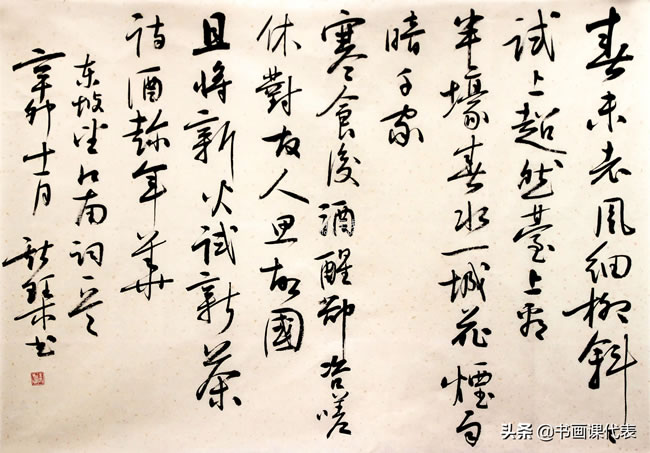 春未老風細柳斜斜
试上超然臺上看
半壕春水一城花煙雨
暗千家
寒食後酒醒卻咨嗟
休對故人思故國
且將新火試新茶
诗酒趁年華
东坡望江南词一首
辛卯十月 书
头条 @书画课代表